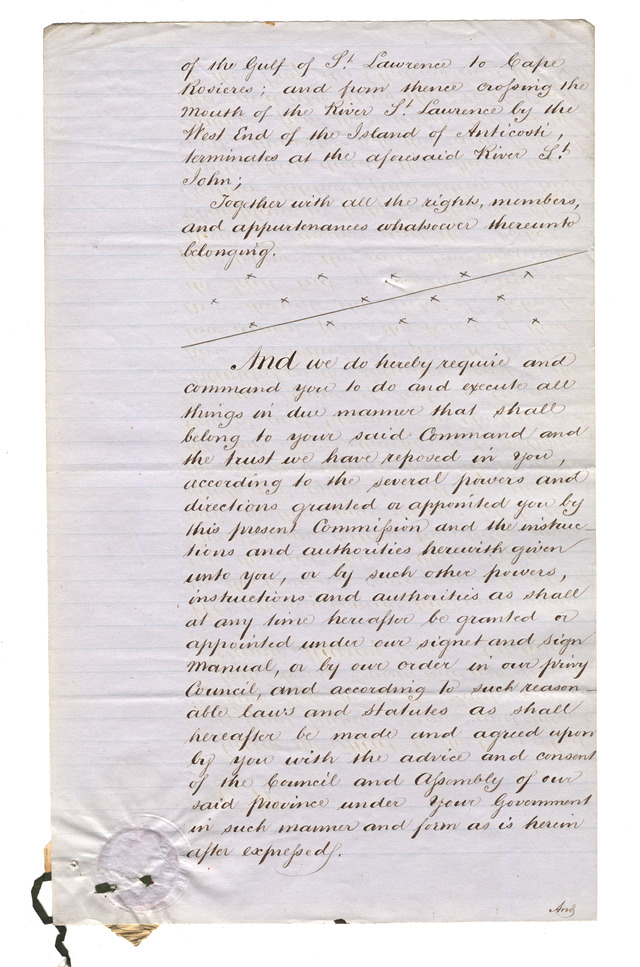 of the Gulf of St Lawrence to Cape
Rosieres; and from thence crossing the
Mouth of the River St Lawrence by the
West End of the Island of Anticosti,
terminates at the aforesaid River St
John;
Together with all the rights, members,
and appurtenances whatsoever thereunto
belonging.
x x x x x
x x x x x
x x x x x
And we do hereby require and
command you to do and execute all
things in due manner that shall
belong to your said Command and
the trust we have reposed in You,
according to the several powers and
directions granted or appointed you by
this present Commission and the instruc-
tions and authorities herewith given
unto you, or by such other powers,
instructions and authorities as shall
at any time hereafter be granted or
appointed under our signet and sign
Manual, or by our order in our privy
Council, and according to such reason-
able laws and statutes as shall
hereafter be made and agreed upon
by you with the advice and consent
of the Council and Assembly of our
said province under Your Government
in such manner and form as is herein
after expressed.
And